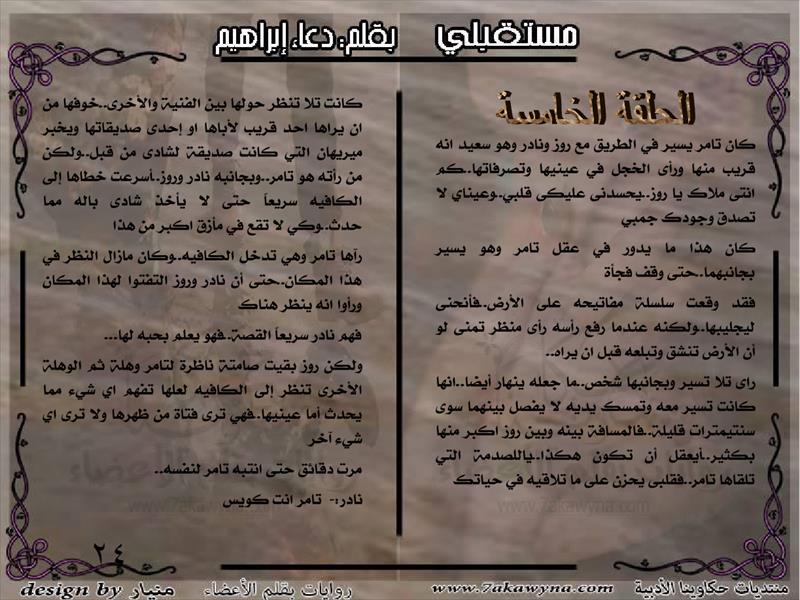 مستقبلي بقلم: دعاء إبراهيم
الحلقة الخامسة
كان تامر يسير في الطريق مع روز ونادر وهو سعيد انه
قريب منها ورأى الخجل في عينيها وتصرفاتها..كم
انتى ملاك يا روز..يحسدنى عليكى قلبي..وعيناي لا
تصدق وجودك جمبي
كان هذا ما يدور في عقل تامر وهو يسير
بجانبهما..حتى وقف فجأة
فقد وقعت سلسلة مفاتيحه على الأرض..فأنحنى
ليجليبها..ولكنه عندما رفع رأسه رأى منظر تمنى لو
أن الأرض تنشق وتبلعه قبل ان يراه..
راى تلا تسير وبجانبها شخص..ما جعله ينهار أيضا..انها
كانت تسير معه وتمسك يديه لا يفصل بينهما سوى
سنتيمترات قليلة..فالمسافة بينه وبين روز اكبر منها
بكثير..أيعقل أن تكون هكذا..ياللصدمة التي
تلقاها تامر..فقلبى يحزن على ما تلاقيه في حياتك
كانت تلا تنظر حولها بين الفنية والأخرى..خوفها من
ان يراها احد قريب لأباها او إحدى صديقاتها ويخبر
ميريهان التي كانت صديقة لشادى من قبل..ولكن
من رأته هو تامر..وبجانبه نادر وروز..أسرعت خطاها إلى
الكافيه سريعاً حتى لا يأخذ شادى باله مما
حدث..وكي لا تقع في مأزق اكبر من هذا
رآها تامر وهي تدخل الكافيه..وكان مازال النظر في
هذا المكان..حتى أن نادر وروز التفتوا لهذا المكان
ورأوا انه ينظر هناك
فهم نادر سريعاً القصة..فهو يعلم بحبه لها...
ولكن روز بقيت صامتة ناظرة لتامر وهلة ثم الوهلة
الأخرى تنظر إلى الكافيه لعلها تفهم اي شيء مما
يحدث أما عينيها..فهي ترى فتاة من ظهرها ولا ترى اي
شيء آخر
مرت دقائق حتى انتبه تامر لنفسه..
نادر:- تامر انت كويس
٢٤
منتديات حكاوينا الأدبية www.7akawyna.com روايات بقلم الأعضاء design by منيار